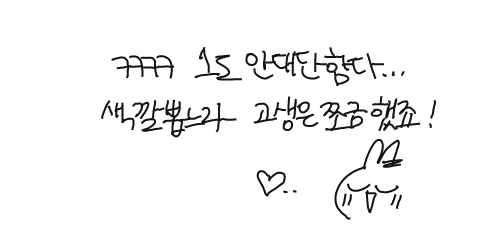 ㅋㅋㅋㅋ 1도 안대단함다...
색깔뽑느라 고생은 쪼금했죠!
♡..